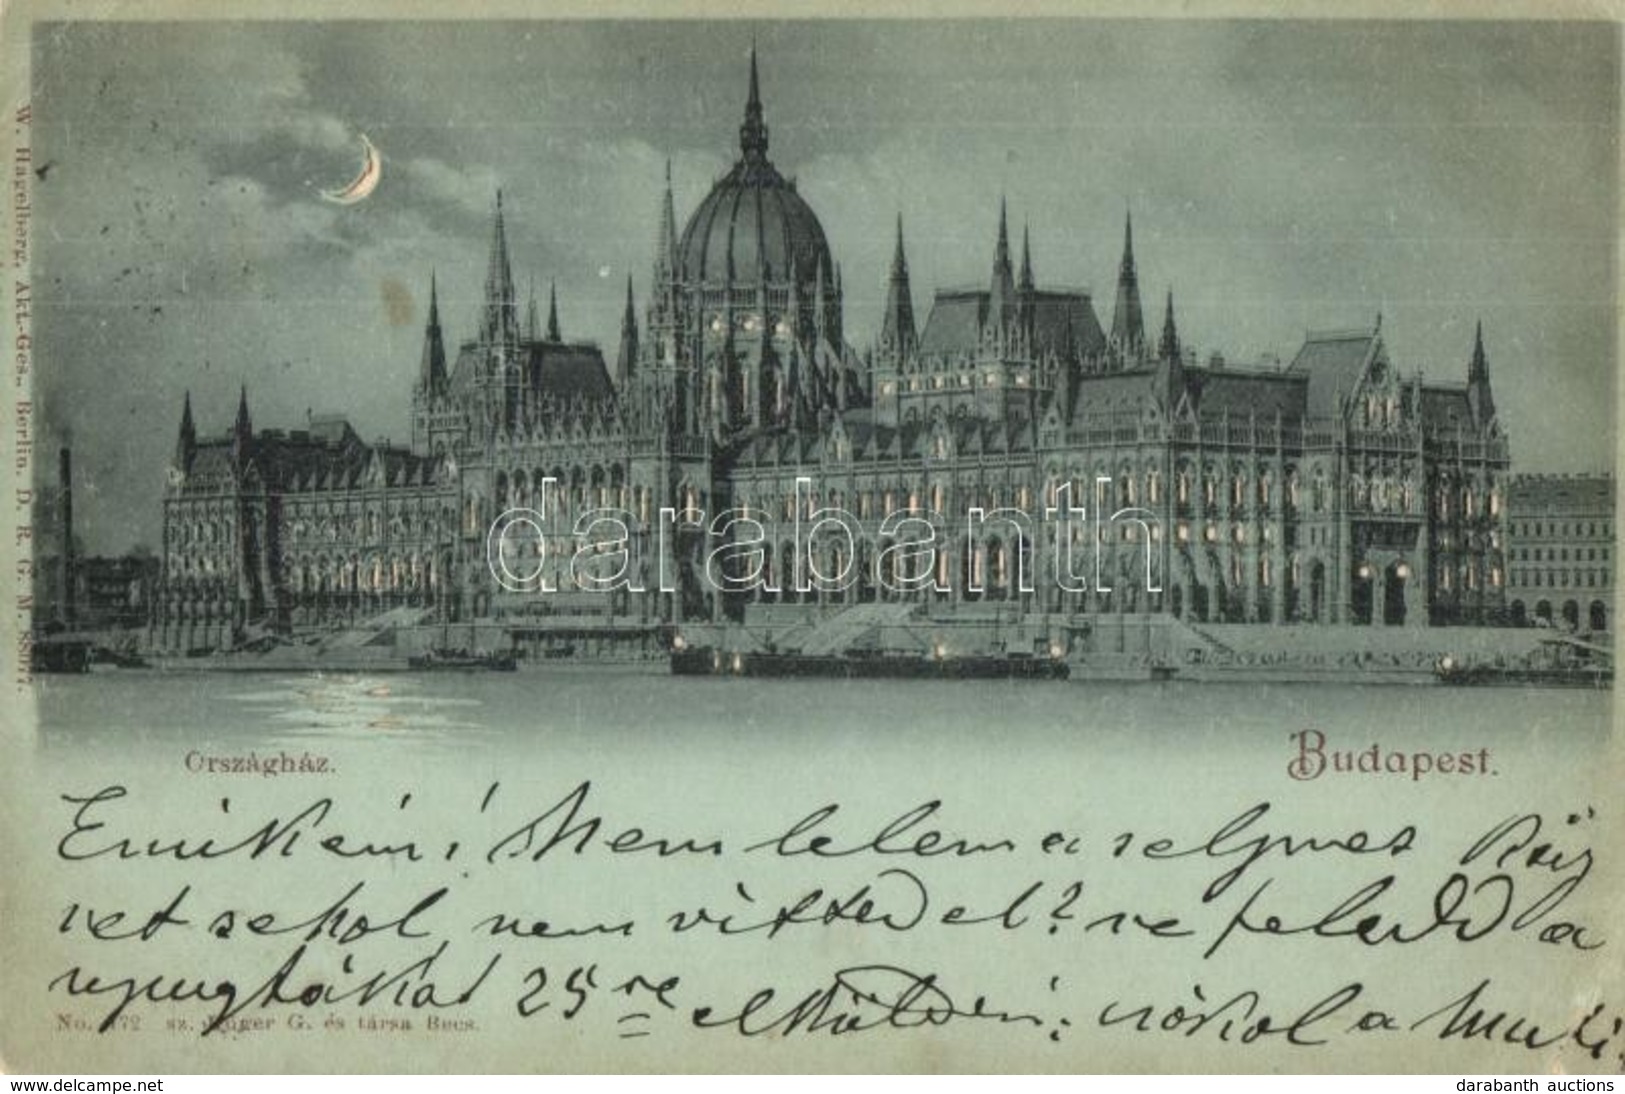 W. Hagelberg, Akt.-Ges., Berlin. D. R. G. M. 88077.
darabanth
Országház.
Budapest.
Emikém! Nem lelem a selymes
vet sehol, nem vitted el? ne feledd a
nyugtákat 25 re elküldeni: csókol a Muki.
No. 172 sz. Ruger G. és társa Becs.
www.delcampe.net
darabanth auctions